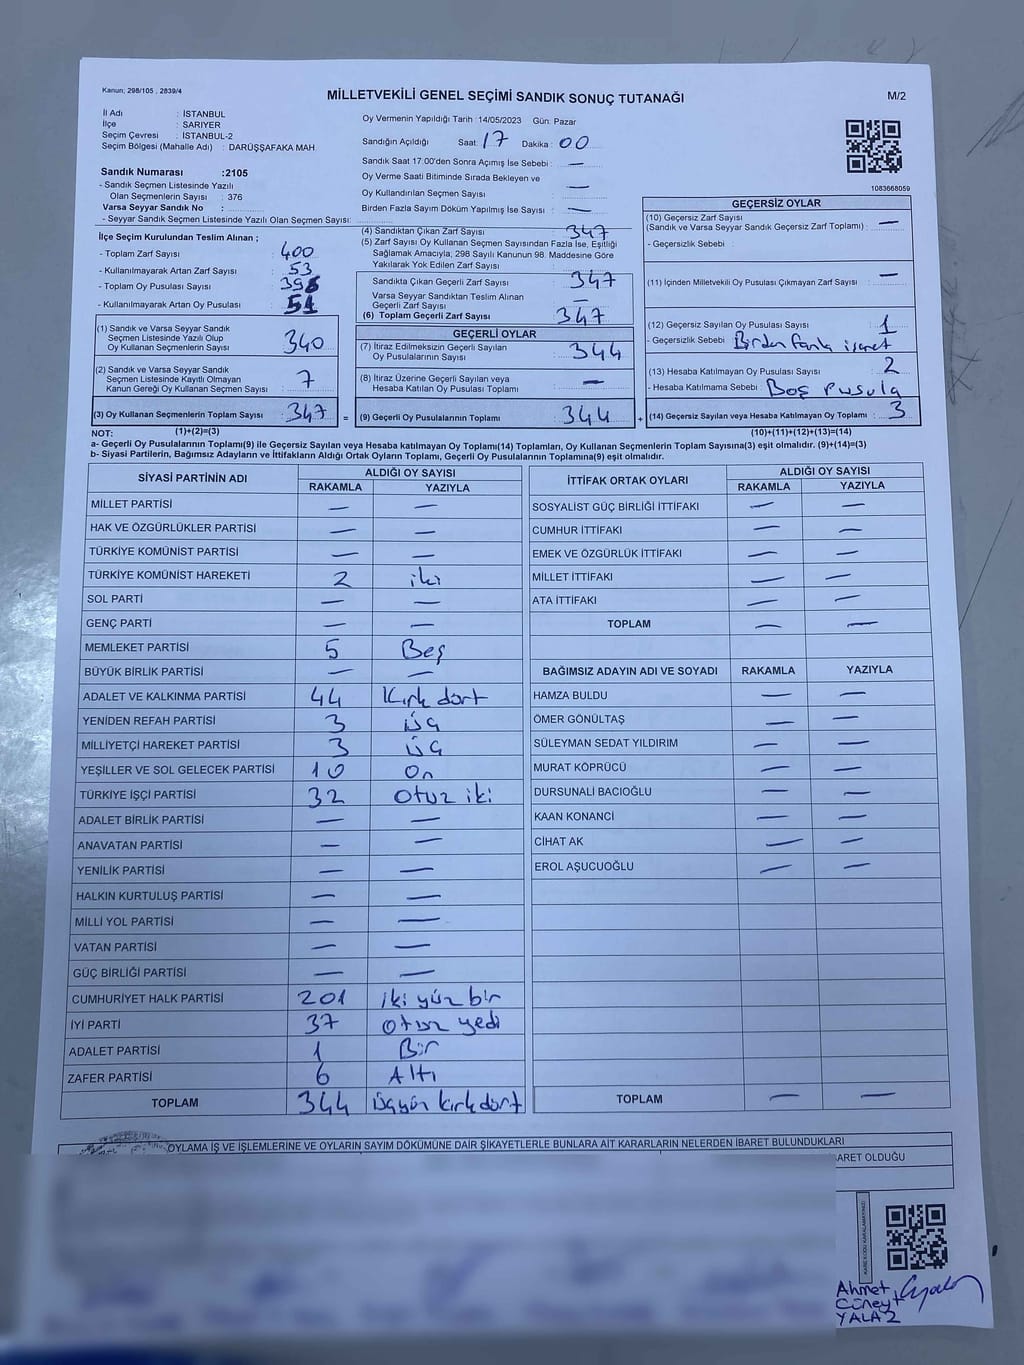 Kanun; 298/105 , 2839/4
MİLLETVEKİLİ GENEL SEÇİMİ SANDIK SONUÇ TUTANAĞI
M/2
İl Adı : İSTANBUL
İlçe : SARIYER
Seçim Çevresi : İSTANBUL-2
Seçim Bölgesi (Mahalle Adı) : DARÜŞŞAFAKA MAH
Sandık Numarası :2105
- Sandık Seçmen Listesinde Yazılı
Olan Seçmenlerin Sayısı : 376
Varsa Seyyar Sandık No :
- Seyyar Sandık Seçmen Listesinde Yazılı Olan Seçmen Sayısı:
Oy Vermenin Yapıldığı Tarih : 14/05/2023 Gün: Pazar
Sandığın Açıldığı Saat: 17 Dakika: 00
Sandık Saat 17.00'den Sonra Açımış İse Sebebi : —
Oy Verme Saati Bitiminde Sırada Bekleyen ve
Oy Kullandırılan Seçmen Sayısı : —
Birden Fazla Sayım Döküm Yapılmış İse Sayısı : —
1083668059
İlçe Seçim Kurulundan Teslim Alınan ;
- Toplam Zarf Sayısı : 400
- Kullanılmayarak Artan Zarf Sayısı : 53
- Toplam Oy Pusulası Sayısı :
- Kullanılmayarak Artan Oy Pusulası :
(1) Sandık ve Varsa Seyyar Sandık
Seçmen Listesinde Yazılı Olup
Oy Kullanan Seçmenlerin Sayısı : 340
(2) Sandık ve Varsa Seyyar Sandık
Seçmen Listesinde Kayıtlı Olmayan
Kanun Gereği Oy Kullanan Seçmen Sayısı : 7
(3) Oy Kullanan Seçmenlerin Toplam Sayısı : 347
(1)+(2)=(3)
(4) Sandıktan Çıkan Zarf Sayısı : 347
(5) Zarf Sayısı Oy Kullanan Seçmen Sayısından Fazla İse, Eşitliği
Sağlamak Amacıyla; 298 Sayılı Kanunun 98. Maddesine Göre
Yakılarak Yok Edilen Zarf Sayısı :
Sandıkta Çıkan Geçerli Zarf Sayısı : 347
Varsa Seyyar Sandıktan Teslim Alınan
Geçerli Zarf Sayısı : —
(6) Toplam Geçerli Zarf Sayısı : 347
GEÇERLİ OYLAR
(7) İtiraz Edilmeksizin Geçerli Sayılan
Oy Pusulalarının Sayısı : 344
(8) İtiraz Üzerine Geçerli Sayılan veya
Hesaba Katılan Oy Pusulaları Toplamı : —
= (9) Geçerli Oy Pusulalarının Toplamı : 344 +
GEÇERSİZ OYLAR
(10) Geçersiz Zarf Sayısı
(Sandık ve Varsa Seyyar Sandık Geçersiz Zarf Toplamı) : —
- Geçersizlik Sebebi :
(11) İçinden Milletvekili Oy Pusulası Çıkmayan Zarf Sayısı : —
(12) Geçersiz Sayılan Oy Pusulası Sayısı : 1
- Geçersizlik Sebebi : Birden fazla işaret
(13) Hesaba Katılmayan Oy Pusulası Sayısı : 2
- Hesaba Katılmama Sebebi : Boş Pusula
(14) Geçersiz Sayılan veya Hesaba Katılmayan Oy Toplamı : 3
(10)+(11)+(12)+(13)=(14)
NOT:
a- Geçerli Oy Pusulalarının Toplamı(9) ile Geçersiz Sayılan veya Hesaba katılmayan Oy Toplamı(14) Toplamları, Oy Kullanan Seçmenlerin Toplam Sayısına(3) eşit olmalıdır. (9)+(14)=(3)
b- Siyasi Partilerin, Bağımsız Adayların ve İttifakların Aldığı Ortak Oyların Toplamı, Geçerli Oy Pusulalarının Toplamına(9) eşit olmalıdır.
SİYASİ PARTİNİN ADI ALDIĞI OY SAYISI
RAKAMLA YAZIYLA
MİLLET PARTİSİ — —
HAK VE ÖZGÜRLÜKLER PARTİSİ — —
TÜRKİYE KOMÜNİST PARTİSİ — —
TÜRKİYE KOMÜNİST HAREKETİ 2 iki
SOL PARTİ — —
GENÇ PARTİ — —
MEMLEKET PARTİSİ 5 Beş
BÜYÜK BİRLİK PARTİSİ — —
ADALET VE KALKINMA PARTİSİ 44 Kırk dört
YENİDEN REFAH PARTİSİ 3 üç
MİLLİYETÇİ HAREKET PARTİSİ 3 üç
YEŞİLLER VE SOL GELECEK PARTİSİ 10 On
TÜRKİYE İŞÇİ PARTİSİ 32 Otuz iki
ADALET BİRLİK PARTİSİ — —
ANAVATAN PARTİSİ — —
YENİLİK PARTİSİ — —
HALKIN KURTULUŞ PARTİSİ — —
MİLLİ YOL PARTİSİ — —
VATAN PARTİSİ — —
GÜÇ BİRLİĞİ PARTİSİ — —
CUMHURİYET HALK PARTİSİ 201 iki yüz bir
İYİ PARTİ 37 Otuz yedi
ADALET PARTİSİ 1 Bir
ZAFER PARTİSİ 6 Altı
TOPLAM 344 üçyüz kırkdört
İTTİFAK ORTAK OYLARI ALDIĞI OY SAYISI
RAKAMLA YAZIYLA
SOSYALİST GÜÇ BİRLİĞİ İTTİFAKI — —
CUMHUR İTTİFAKI — —
EMEK VE ÖZGÜRLÜK İTTİFAKI — —
MİLLET İTTİFAKI — —
ATA İTTİFAKI — —
TOPLAM — —
BAĞIMSIZ ADAYIN ADI VE SOYADI RAKAMLA YAZIYLA
HAMZA BULDU — —
ÖMER GÖNÜLTAŞ — —
SÜLEYMAN SEDAT YILDIRIM — —
MURAT KÖPRÜCÜ — —
DURSUNALİ BACIOĞLU — —
KAAN KONANCİ — —
CİHAT AK — —
EROL AŞUCUOĞLU — —
TOPLAM — —
OYLAMA İŞ VE İŞLEMLERİNE VE OYLARIN SAYIM DÖKÜMÜNE DAİR ŞİKAYETLERLE BUNLARA AİT KARARLARIN NELERDEN İBARET BULUNDUKLARI
ARET OLDUĞU
KAREKODU KARALAMAYINIZ!
Ahmet
Cüneyt
YALAZ